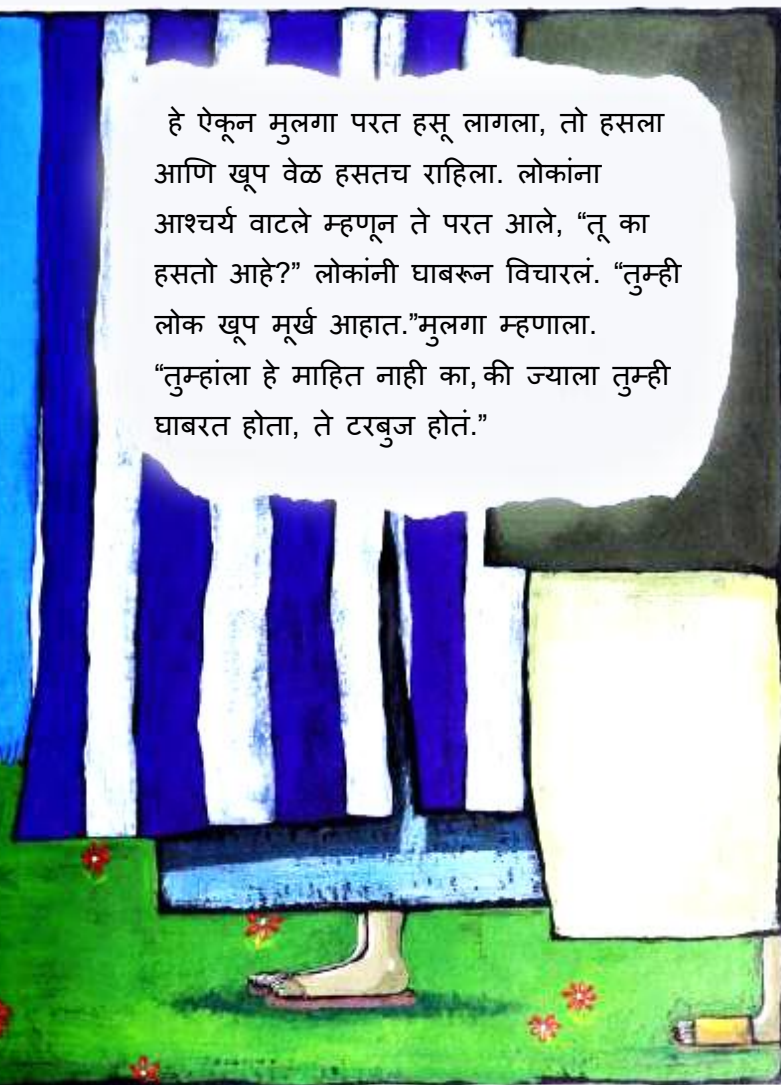 हे ऐकून मुलगा परत हसू लागला, तो हसला
आणि खूप वेळ हसतच राहिला. लोकांना
आश्चर्य वाटले म्हणून ते परत आले, “तू का
हसतो आहे?” लोकांनी घाबरून विचारलं. “तुम्ही
लोक खूप मूर्ख आहात.”मुलगा म्हणाला.
“तुम्हांला हे माहित नाही का, की ज्याला तुम्ही
घाबरत होता, ते टरबुज होतं.”